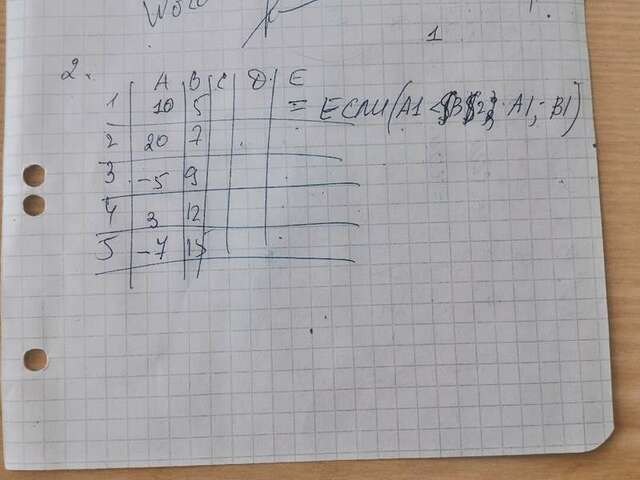 1
2.
A B C D E
1 10 5 = ЕСЛИ(A1<$B$2; A1; -B1)
2 20 7
3 -5 9
4 3 12
5 -7